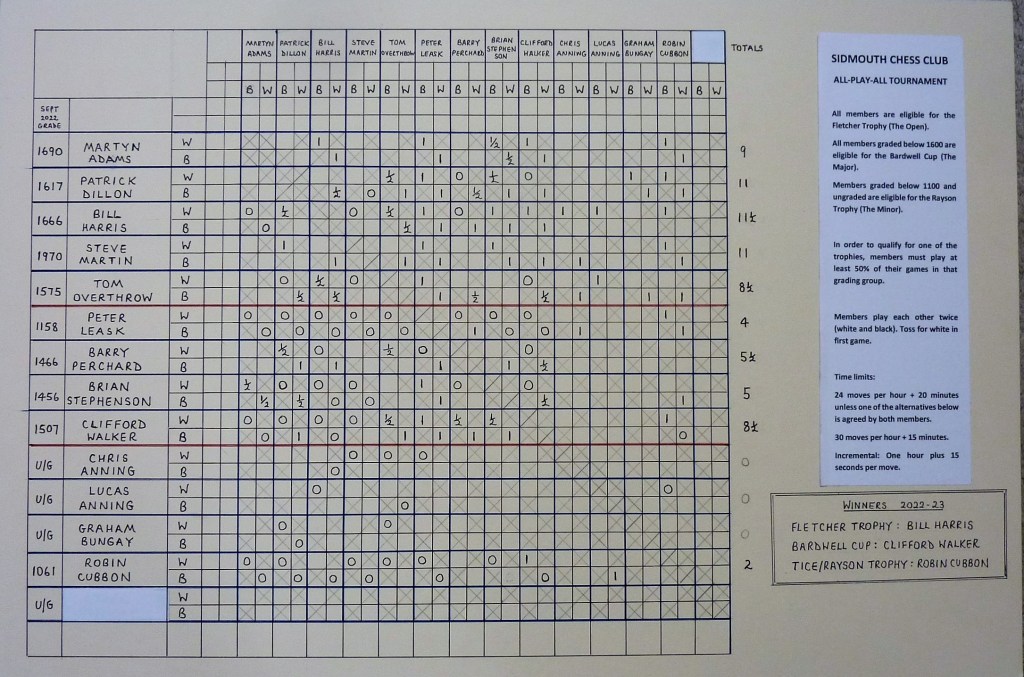 MARTYN ADAMS PATRICK DILLON BILL HARRIS STEVE MARTIN TOM OVERTHROW PETER LEASK BARRY PERCHARD BRIAN STEPHENSON CLIFFORD WALKER CHRIS ANNING LUCAS ANNING GRAHAM BUNGAY ROBIN CUBBON TOTALS
B W B W B W B W B W B W B W B W B W B W B W B W B W B W
SEPT 2022 GRADE
1690 MARTYN ADAMS W 1 1 ½ 1 1
B 1 1 ½ 1 1 9
1617 PATRICK DILLON W ½ 1 0 ½ 0 1 1
B ½ 0 1 1 ½ 1 1 1 1 11
1666 BILL HARRIS W 0 ½ 0 ½ 1 0 1 1 1 1 1
B 0 ½ 1 1 1 1 11½
1970 STEVE MARTIN W 1 1 1 1
B 1 1 1 1 1 1 1 11
1575 TOM OVERTHROW W 0 ½ 0 0 1
B ½ ½ 1 ½ ½ 1 1 1 8½
1158 PETER LEASK W 0 0 0 0 0 0 0 0 1
B 0 0 0 0 0 1 0 0 1 1 4
1466 BARRY PERCHARD W ½ 0 ½ 0 0
B 1 1 1 1 ½ 5½
1456 BRIAN STEPHENSON W ½ 0 0 0 1 0 0
B ½ ½ 0 0 1 ½ 1 5
1507 CLIFFORD WALKER W 0 0 0 0 ½ 1 ½ ½ 1
B 0 1 0 1 1 1 1 0 8½
U/G CHRIS ANNING W 0 0 0
B 0 0
U/G LUCAS ANNING W 0 0
B 0 0
U/G GRAHAM BUNGAY W 0 0
B 0 0
1061 ROBIN CUBBON W 0 0 0 0 0 0 0 1
B 0 0 0 0 0 0 1 2
U/G W
B
SIDMOUTH CHESS CLUB
ALL-PLAY-ALL TOURNAMENT
All members are eligible for the
Fletcher Trophy (The Open).
All members graded below 1600 are
eligible for the Bardwell Cup (The
Major).
Members graded below 1100 and
ungraded are eligible for the Rayson
Trophy (The Minor).
In order to qualify for one of the
trophies, members must play at
least 50% of their games in that
grading group.
Members play each other twice
(white and black). Toss for white in
first game.
Time limits:
24 moves per hour + 20 minutes
unless one of the alternatives below
is agreed by both members.
30 moves per hour + 15 minutes.
Incremental: One hour plus 15
seconds per move.
WINNERS 2022-23
FLETCHER TROPHY : BILL HARRIS
BARDWELL CUP : CLIFFORD WALKER
TICE/RAYSON TROPHY : ROBIN CUBBON